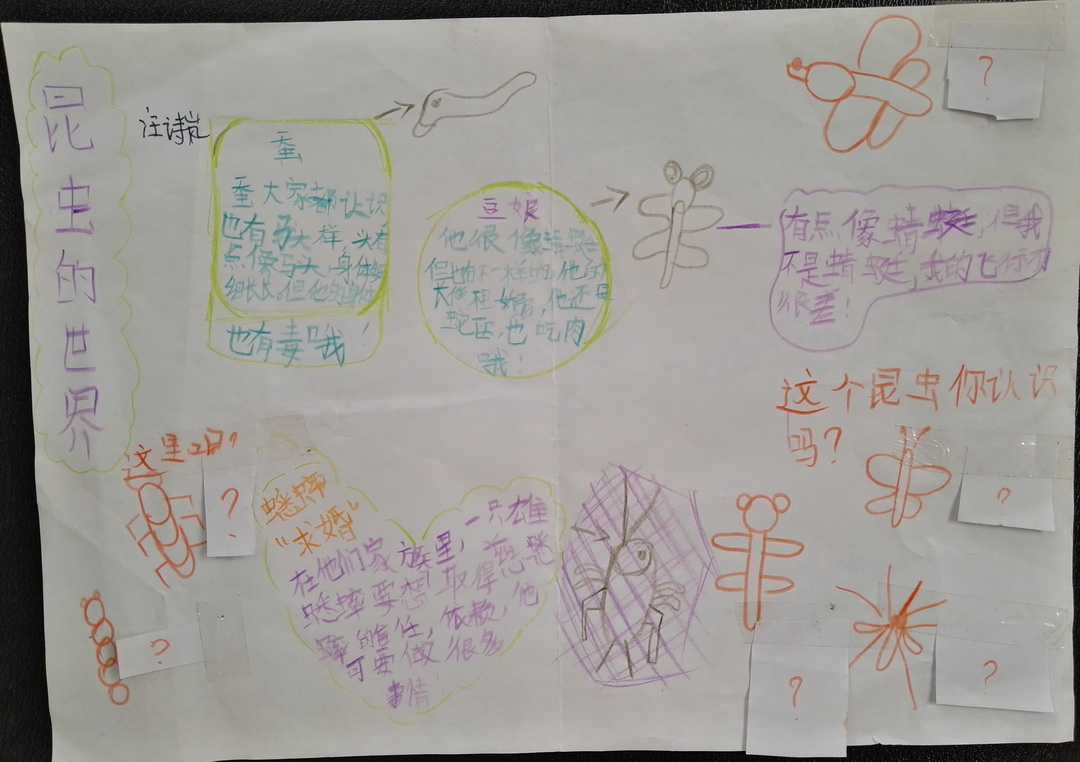 昆虫的世界
汪诗岚
蚕
蚕大家都认识
也有马大样,头有
点像马头,身体
细长长。但他的身体
也有毒哦!
豆娘
他很像蜻蜓
但也有不一样的,他的
蜻,他还是
吃肉
哦!
有点像蜻蜓,但我
不是蜻蜓,我的飞行力
很差!
这个昆虫你认识
吗?
?
?
这里呢?
?
?
?
?
蟋蟀
“求婚”
在他们家族里,一只雄
蟋蟀要想取得
蟀的信任,依赖,他
可要做很多
事情!